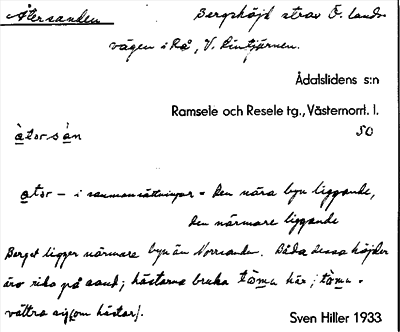 Återsanden Bergshöjd strax Ö. lands-
vägen i Rå, V. Rintjärnen.
Ådalslidens s:n
Ramsele och Resele tg., Västernorrl. l.
50
àtorsàn
ator – i sammansättningar = den nära byn liggande,
den närmare liggande
Berget ligger närmare byn än Norrsanden. Båda dessa höjder
äro rika på sand; hästarna bruka töma här; töma =
vältra sig (om hästar).
Sven Hiller 1933